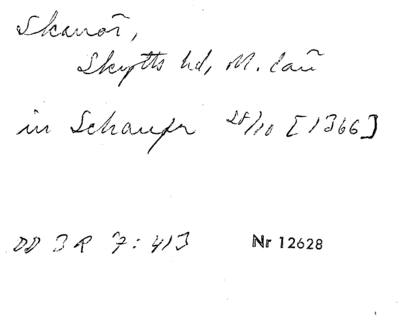 Skanör,
Skytts hd, M. län
in Schanør 28/10 [1366]
DD 3 R 7:413 Nr 12628